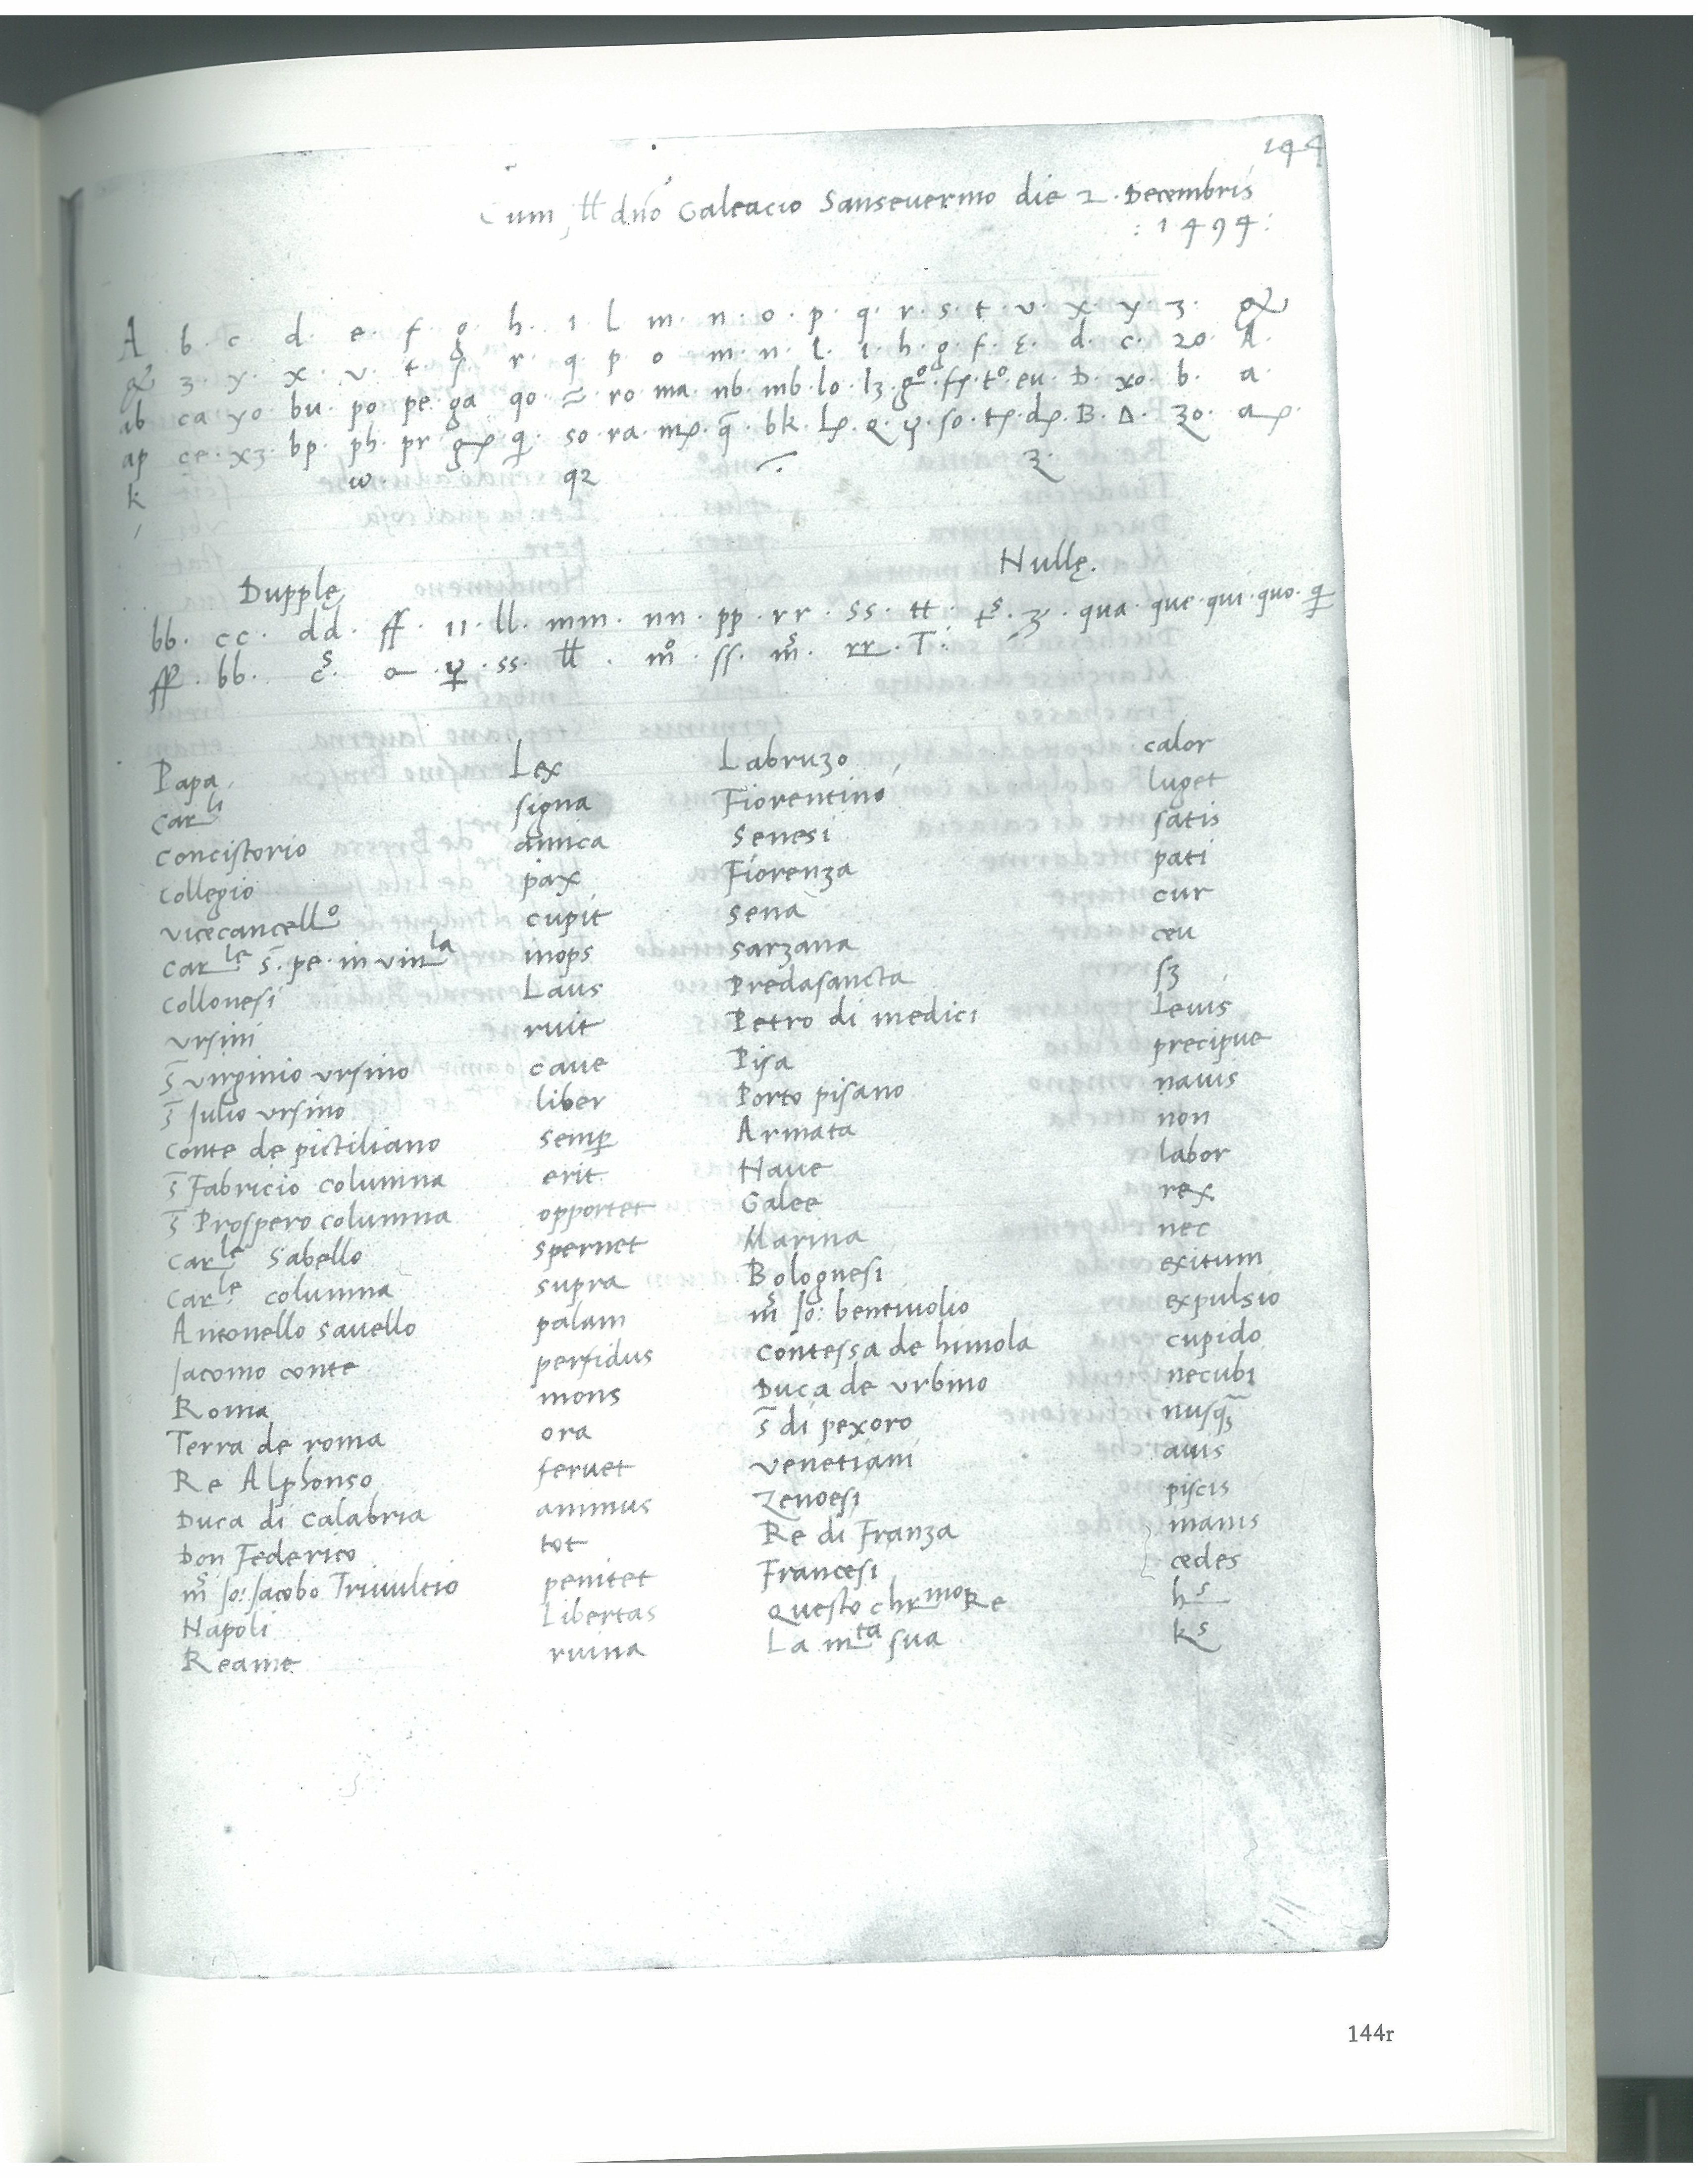 144
Cum Ill d.no Galeacio Sanseverino die 2. Decembris
: 1494 :
A b. c. d. e. f. g. h. i. l m. n. o. p. q. r. s. t. v. x. y. z. &
& z. y. x. v. t. s. r. q. p. o m. n. l. i. h. g. f. e. d. c. 20. A.
ab ca yo bu po pe ga qo ro ma nb. mb. lo. lz. go. to. eu. D. xo. b. a.
ap ce. xz. bp. ph. pr so. ra. bk. so B. Δ. zo.
k w. q2
Dupplę Nullę.
bb. cc. dd. ff. ii. ll. mm. nn. pp. rr. ss. tt. qua. que. qui. quo.
ff. bb. ss. ll. ſſ. rr. T.
Papa Lex Labruzo calor
Car.li signa Fiorentino luget
Concistorio amica Senesi satis
Collegio pax Fiorenza pati
vicecancello cupit Sena cur
Car.le s̄. pe. in vin.la inops Sarzana ceu
Collonesi Laus Predasancta sz
Ursini ruit Petro di medici Levis
s̄ virginio ursino cave Pisa precipue
s̄ Julio ursino liber Porto pisano navis
Conte de pictiliano semp̱ Armata non
s̄ Fabricio columna erit Nave labor
s̄ Prospero columna opportet Galee rex
Car.le Sabello spernet Marina nec
Car.le columna supra Bolognesi exitum
Antonello savello palam m̄s Jo: bentivolio expulsio
Jacomo conte perfidus Contessa de himola cupido
Roma mons Duca de urbino necubi
Terra de roma ora s̄ di pexoro nusq̄
Re Alphonso fervet venetiani avis
Duca di Calabria animus Zenoesi piscis
Don Federico tot Re di Franza manis
m̄s Jo: Jacobo Trivultio penitet Francesi cedes
Napoli Libertas Questo chr.mo Re hs
Reame ruina La m.ta sua ks
144r